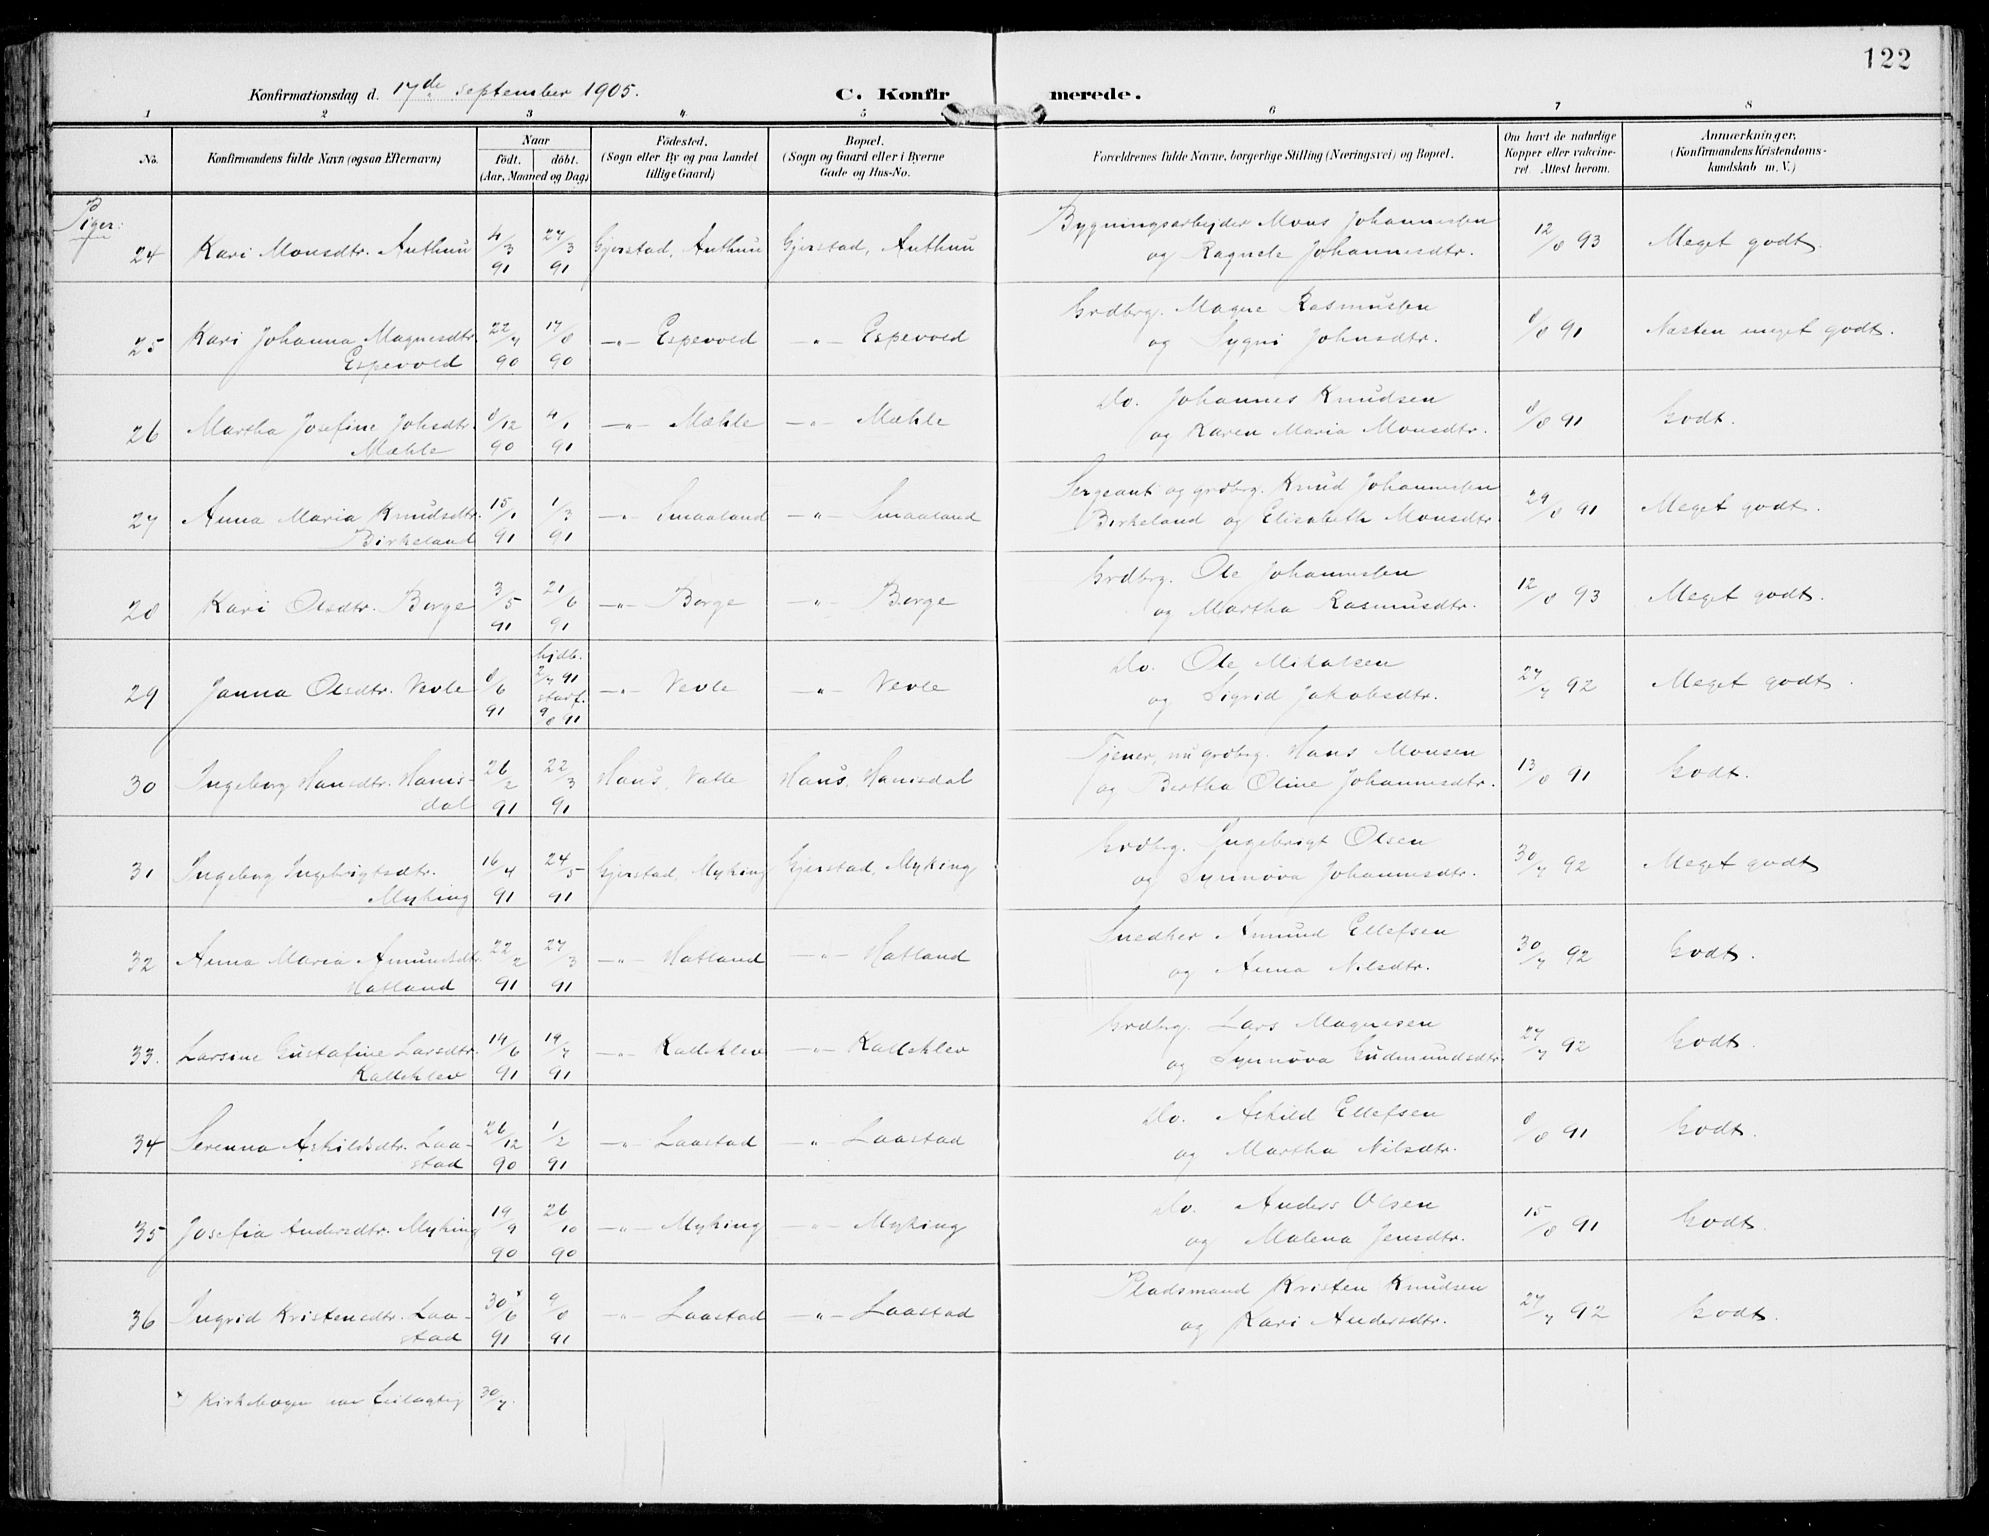 122
Konfirmationsdag d. 17de september 1905.
C. Konfirmerede.
1 2 3 4 5 6 7 8
No.
Konfirmandens fulde Navn (ogsaa Efternavn)
Naar
født. døbt.
(Aar, Maaned og Dag)
Fødested.
(Sogn eller By og paa Landet
tillige Gaard)
Bopæl.
(Sogn og Gaard eller i Byerne
Gade og Hus-No.
Forældrenes fulde Navne, borgerlige Stilling (Næringsvei) og Bopæl.
Om havt de naturlige
Kopper eller vakcine-
ret Attest herom.
Anmærkninger.
(Konfirmandens Kristendoms-
kundskab m. V.)
Piger:
24 Kari Monsdtr. Anthun 4/3 91 27/3 91 Gjerstad, Anthun Gjerstad, Anthun Bygningsarbejder Mons Johannessen
og Ragnele Johannesdtr. 12/8 93 Meget godt.
25 Kari Johanna Magnesdtr. 22/7 90 17/8 90 —"— Espevold —"— Espevold Grdbrg. Magne Rasmussen
Espevold og Sygni Johnsdtr. 8/8 91 Næsten meget godt.
26 Martha Josefine Johsdtr. 8/12 90 4/1 91 —"— Mæhle —"— Mæhle Do. Johannes Knudsen
Mæhle og Karen Maria Monsdtr. 8/8 91 Godt.
27 Anna Maria Knudsdtr. 15/1 91 1/3 91 —"— Smaaland —"— Smaaland Sergeant og grdbrg. Knud Johannessen
Birkeland Birkeland og Elisabeth Monsdtr. 29/8 91 Meget godt.
28 Kari Olsdtr. Borge 3/5 91 21/6 91 —"— Borge —"— Borge Grdbrg. Ole Johannessen
og Martha Rasmusdtr. 12/8 93 Meget godt.
29 Janna Olsdtr. Vevle 8/6 91 hjdb. 2/7 91 stadf. 9/8 91 —"— Vevle " Vevle Do. Ole Mikalsen
og Sigrid Jakobsdtr. 27/7 92 Meget godt.
30 Ingeborg Hansdtr. Hams- 26/2 91 22/3 91 Haus, Valle Haus, Hamsdal Tjener, nu grdbrg. Hans Monsen
dal og Bertha Oline Johannesdtr. 13/8 91 Godt.
31 Ingeborg Ingebrigtsdtr. 16/4 91 24/5 91 Gjerstad, Myking Gjerstad, Myking Grdbrg. Ingebrigt Olsen
Myking og Synnøva Johannesdtr. 30/7 92 Meget godt
32 Anna Maria Amundsdtr. 22/2 91 27/3 91 —"— Hatland —"— Hatland Snedker Amund Ellefsen
Hatland og Anna Nilsdtr. 30/7 92 Godt.
33. Larsine Gustafine Larsdtr. 19/6 91 19/7 91 —"— Kalleklev —"— Kalleklev Grdbrg. Lars Magnesen
Kalleklev og Synnøva Gudmundsdtr. 27/7 92 Godt.
34 Serenna Askildsdtr. Laa- 26/12 90 1/2 91 —"— Laastad —"— Laastad Do. Askild Ellefsen
stad og Martha Nilsdtr. 8/8 91 Godt.
35 Josefia Andersdtr. Myking 19/9 90 26/10 90 —"— Myking —"— Myking Do. Anders Olsen
og Malena Jensdtr. 15/8 91 Godt.
36 Ingrid Kristensdtr. Laa- 30x/6 91 9/8 91 —"— Laastad —"— Laastad Pladsmand Kristen Knudsen
stad og Kari Andersdtr. 27/7 92 Godt.
x) Kirkebogen har feilagtig 30/7.